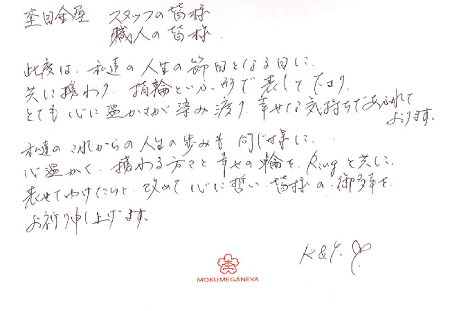 杢目金屋 スタッフの皆様
職人の皆様
此度は、私達の人生の節目となる日に
共に携わり、指輪という形で表して下さり、
とても心に温かさが染み渡り、幸せな気持ちであふれて
おります。
私達のこれからの人生の歩みも同じ様に、
心温かく、携わる方々と幸せの輪を、Ringと共に
表せてゆけたらと、改めて心に誓い、皆様の御多幸を
お祈り申し上げます。
K & Y.
MOKUMEGANEYA